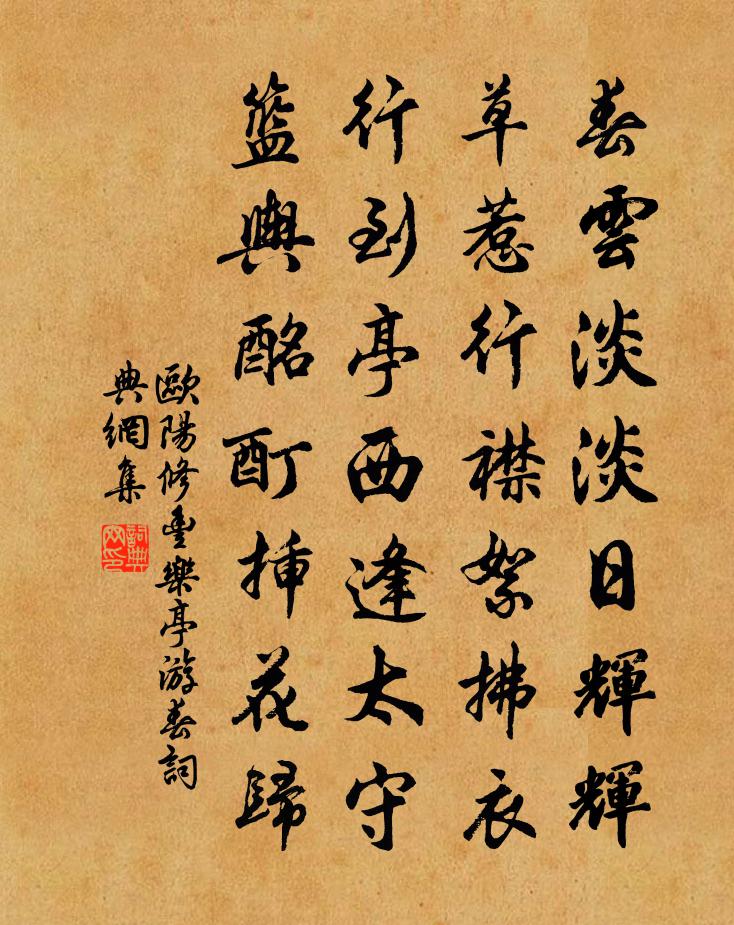 春雲淡淡日輝輝
草惹行襟絮拂衣
行到亭西逢太守
籃輿酩酊插花歸
歐陽修豐樂亭游春詞
典網集
詞典
网印